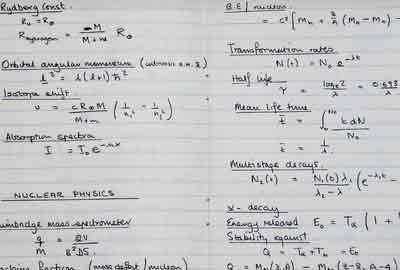 Rydberg Const.
R∞ = R∞
R Hydrogen = M / M+m R∞
Orbital angular momentum
l² = l(l+1)ħ²
Isotope shift.
ν = cR∞M / M+m (1/n₁² − 1/n₂²)
Absorption spectra
I = I₀e
NUCLEAR PHYSICS
Bainbridge mass spectrometer
q/M = 2V / B²DS.
fraction (mass defect / nucleon)
B.E / nucleon
= c² [Mn + Z/A (MH − Mn) −
Transformation rates
N(t) = N₀ e^-λt
Half life
τ = loge2 / λ = 0.693
Mean life time
t̄ = ∫ t dN / N₀
t̄ = 1/λ
Multistage decays.
N₂(t) = N₁(0) λ₁ / λ₂ − λ₁ (e^-λ₁t −
α - decay
Energy released E₀ = Tα (1 +
Stability against
Q = Tα + Tb = E₀
Q = (Z,A) − (Z-2, A-4)